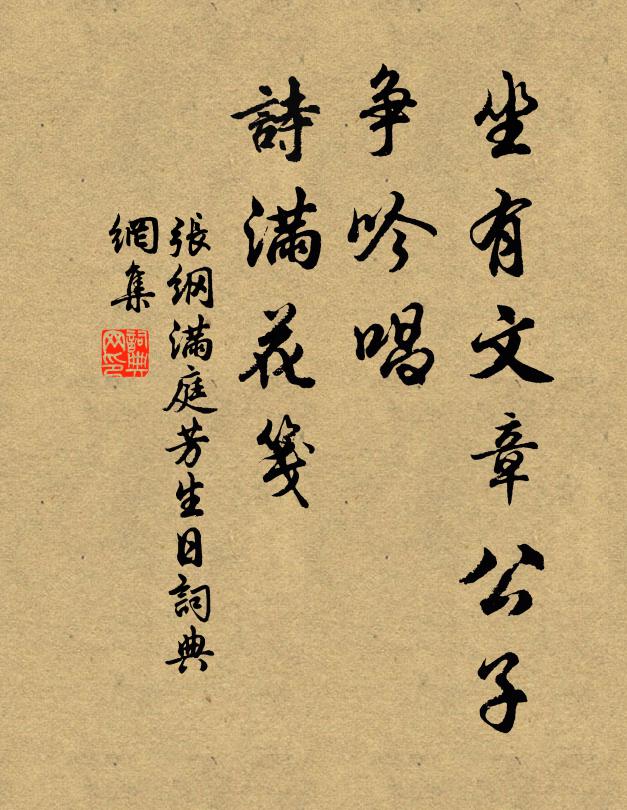 坐有文章公子
争吟唱
詩滿花箋
張綱滿庭芳生日詞典
網集
詞典
网印